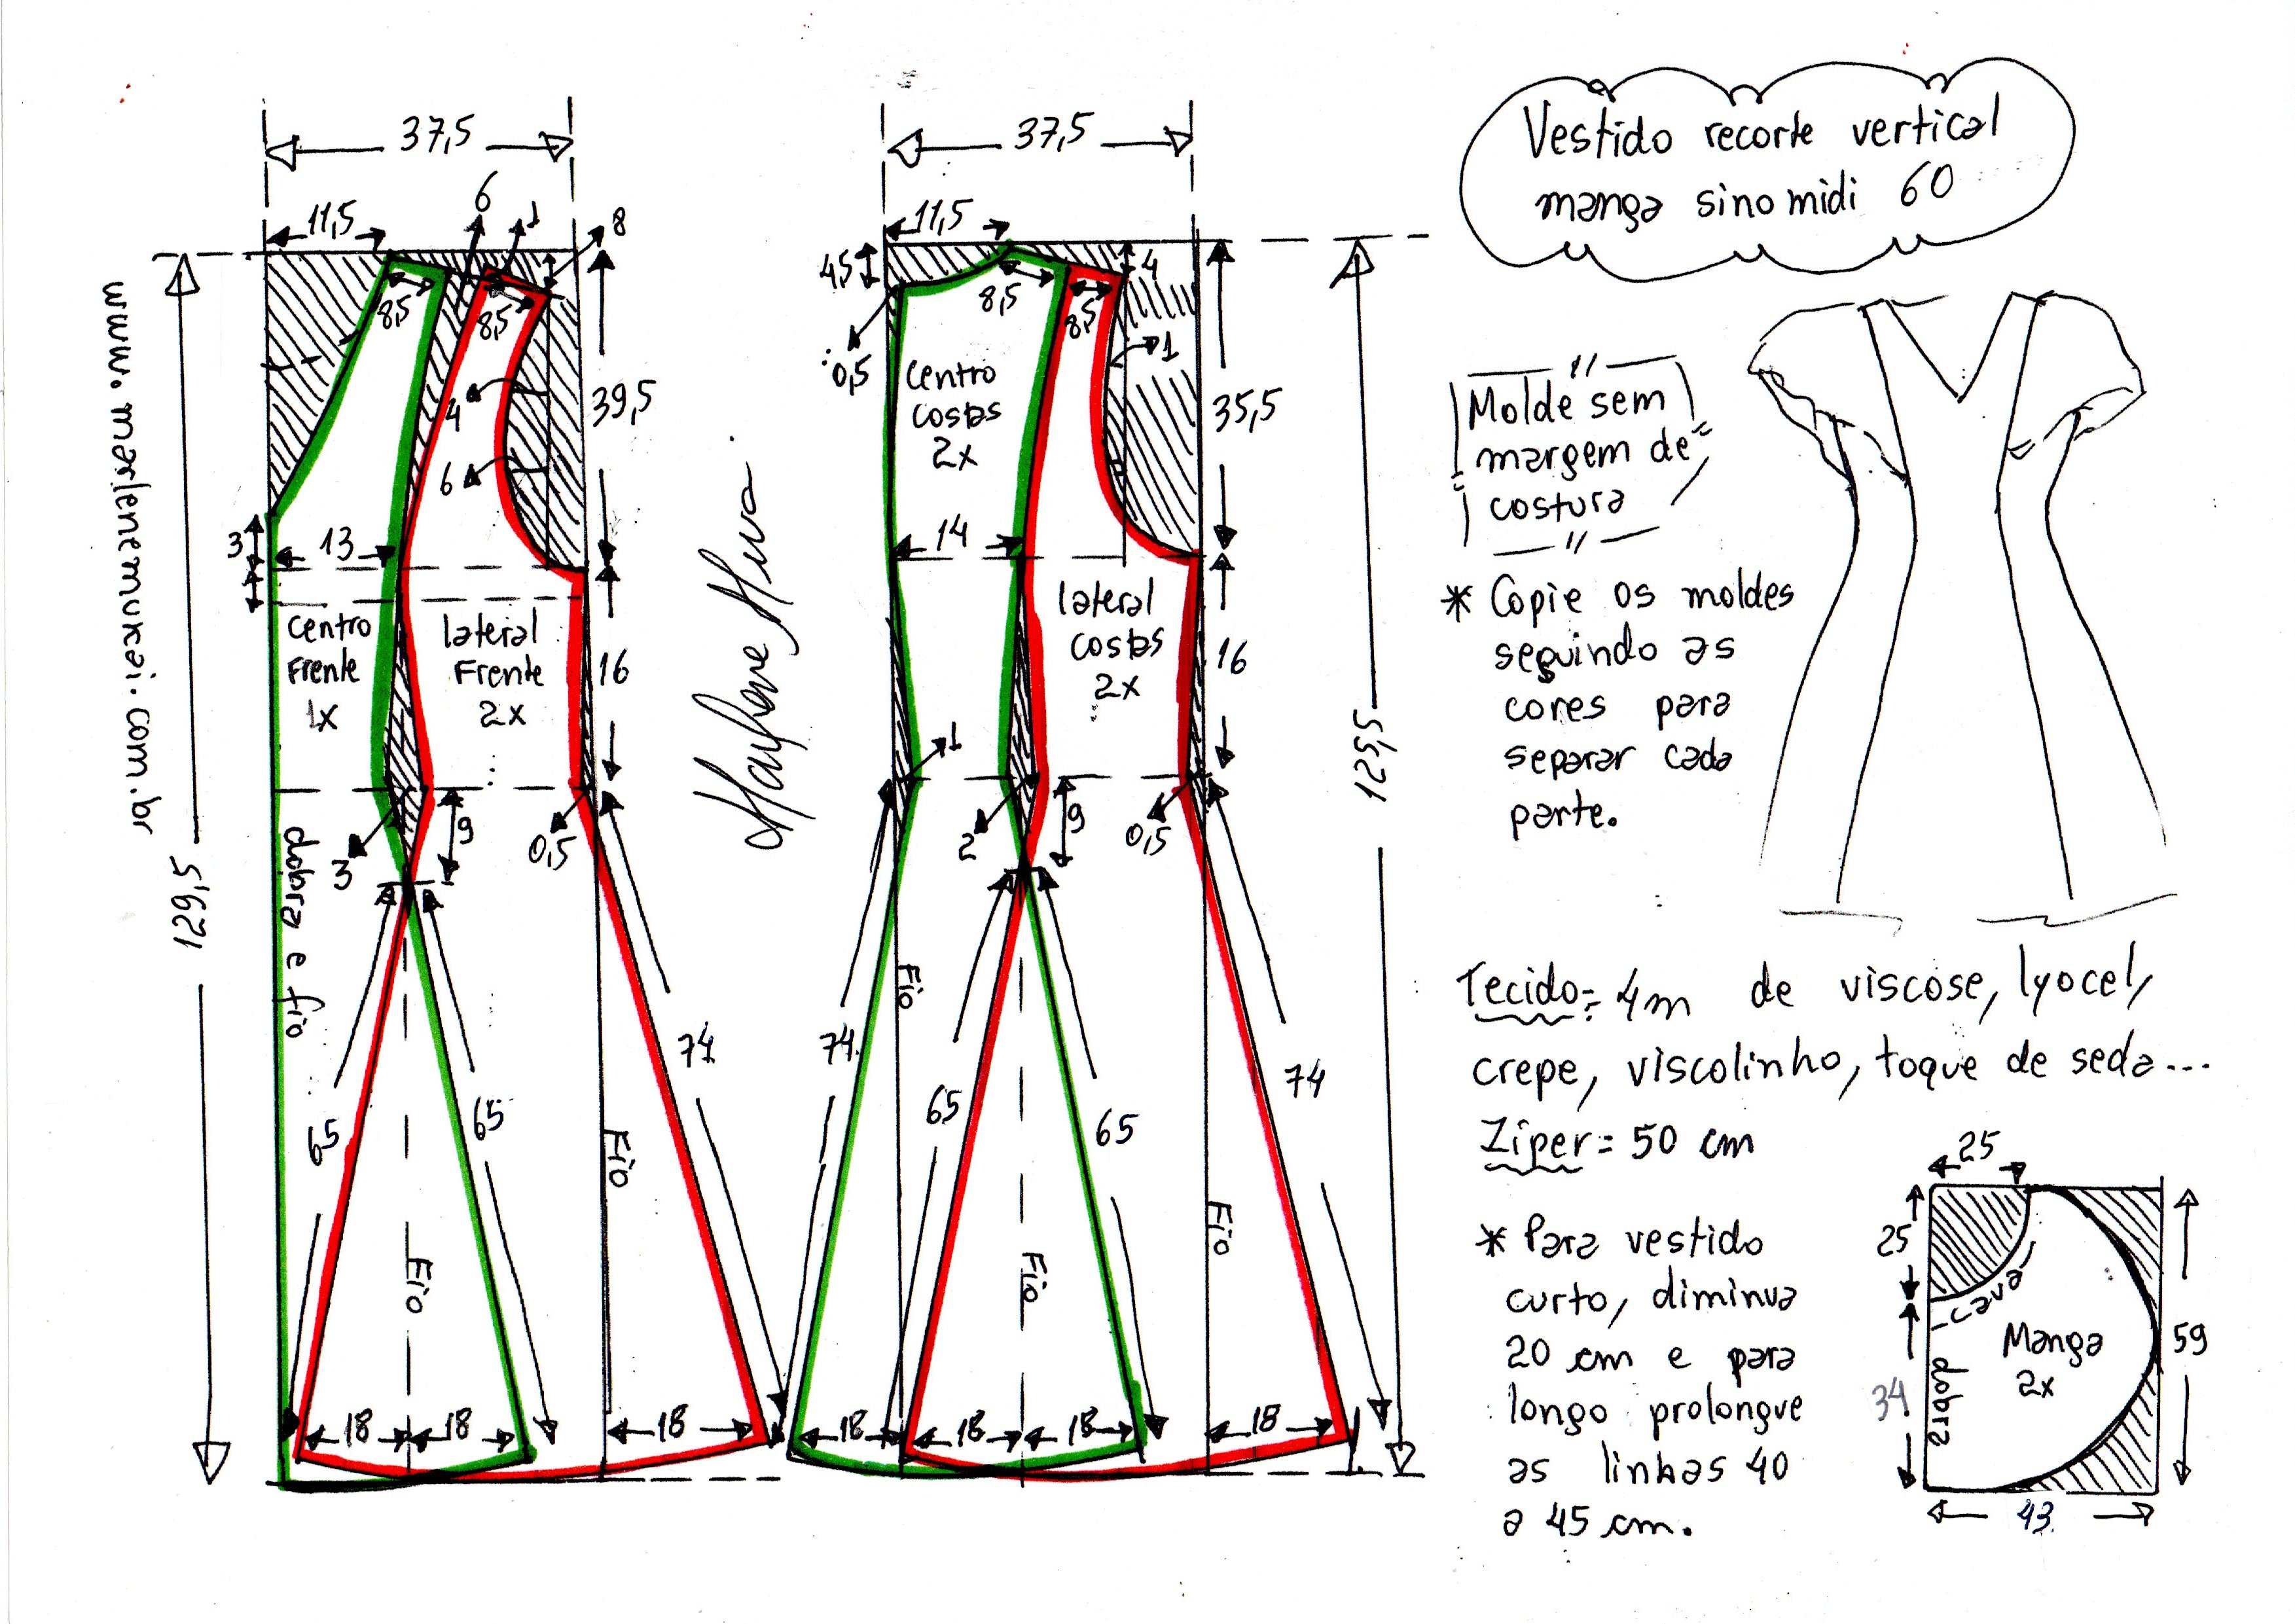 Vestido recorte vertical
manga sino midi 60
37,5
11,5
6
1
8
8,5
8,5
4
6
39,5
3
13
centro
Frente
1x
lateral
Frente
2x
16
9
3
0,5
dobra e fio
129,5
65
65
74
Fio
Fio
18
18
18
www.marlenemukai.com.br
37,5
11,5
4,5
4
8,5
8,5
0,5
1
centro
costas
2x
35,5
14
lateral
costas
2x
16
1
2
9
0,5
125,5
74
Fio
65
65
74
Fio
Fio
18
18
18
18
Molde sem
margem de
costura
* Copie os moldes
seguindo as
cores para
separar cada
parte.
Tecido = 4m de viscose, lyocel,
crepe, viscolinho, toque de seda...
Ziper = 50 cm
* Para vestido
curto, diminua
20 cm e para
longo prolongue
as linhas 40
a 45 cm.
25
25
cava
Manga
2x
59
34
dobra
43